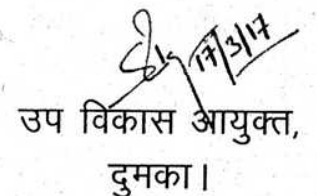 17/3/17
उप विकास आयुक्त,
दुमका।